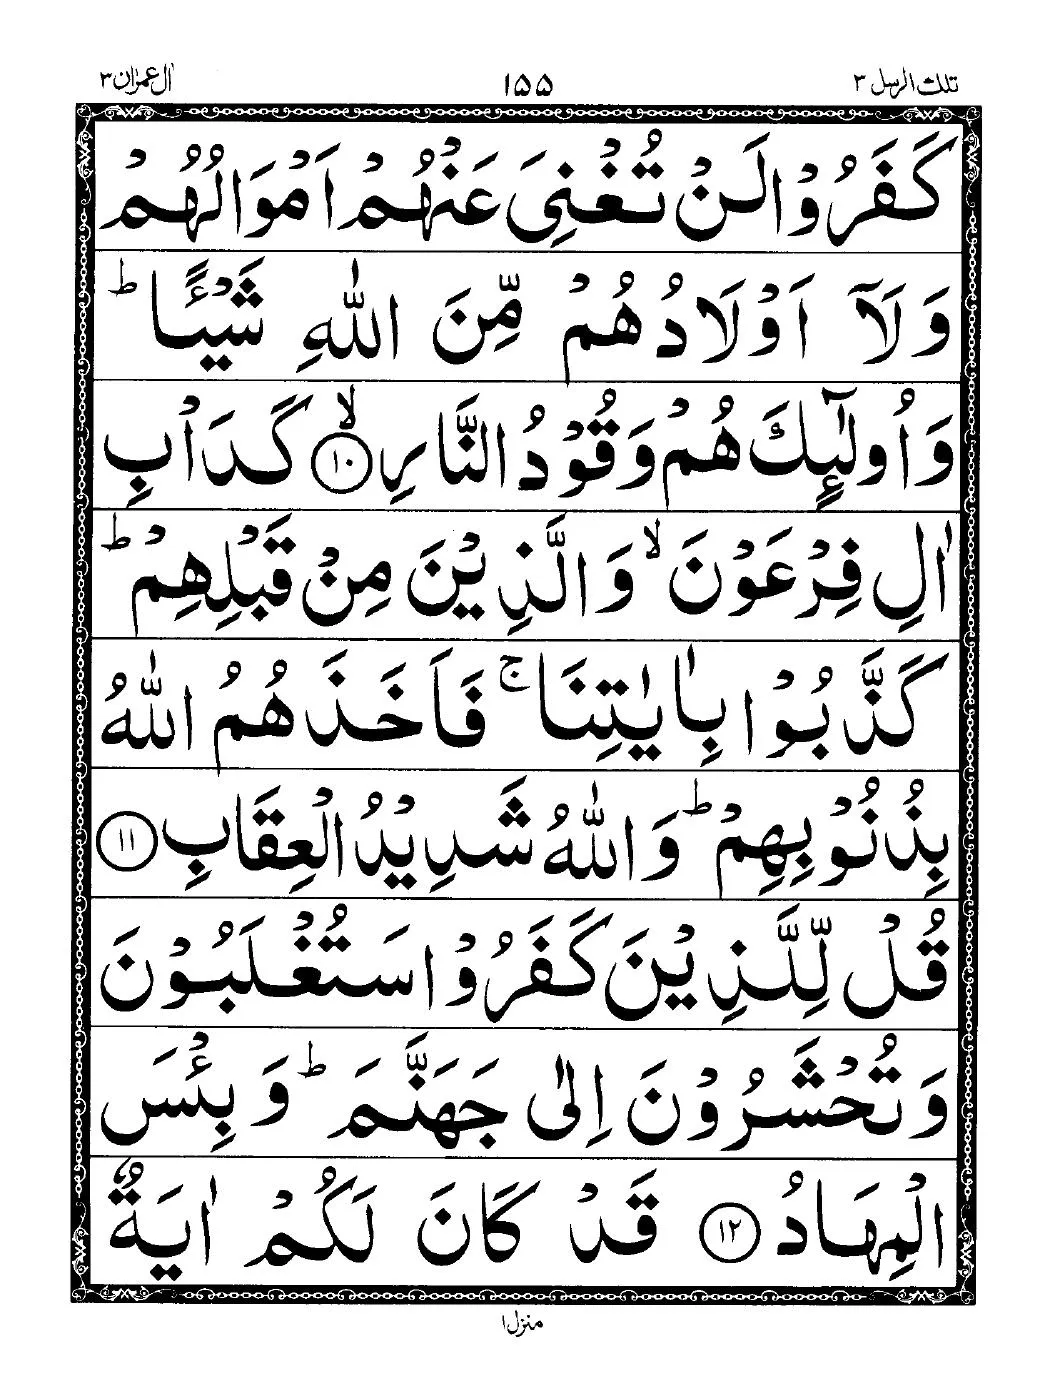 تلك الرسل ٣ ١۵۵ اٰل عمرٰن ٣
كَفَرُوْا لَنْ تُغْنِیَ عَنْهُمْ اَمْوَالُهُمْ
وَلَاۤ اَوْلَادُهُمْ مِّنَ اللّٰهِ شَیْـًٔا ؕ
وَاُولٰٓىِٕكَ هُمْ وَقُوْدُ النَّارِ ۙ۝۱۰ كَدَاْبِ
اٰلِ فِرْعَوْنَ ۙ وَالَّذِیْنَ مِنْ قَبْلِهِمْ ؕ
كَذَّبُوْا بِاٰیٰتِنَا ۚ فَاَخَذَهُمُ اللّٰهُ
بِذُنُوْبِهِمْ ؕ وَاللّٰهُ شَدِیْدُ الْعِقَابِ ۝۱۱
قُلْ لِّلَّذِیْنَ كَفَرُوْا سَتُغْلَبُوْنَ
وَتُحْشَرُوْنَ اِلٰی جَهَنَّمَ ؕ وَبِئْسَ
الْمِهَادُ ۝۱۲ قَدْ كَانَ لَكُمْ اٰیَةٌ
منزل ١